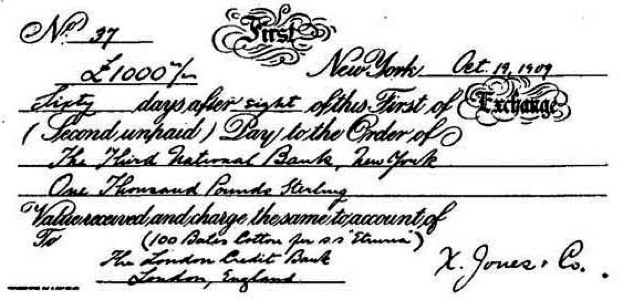 No. 37 First
£1000 New York Oct. 19, 1909
Sixty days after sight of this First of Exchange
(Second unpaid) Pay to the Order of
The Third National Bank, New York
One Thousand Pounds Sterling
Value received and charge the same to account of
To (100 Bales Cotton per s.s "Etruria")
The London Credit Bank
London, England X. Jones & Co.